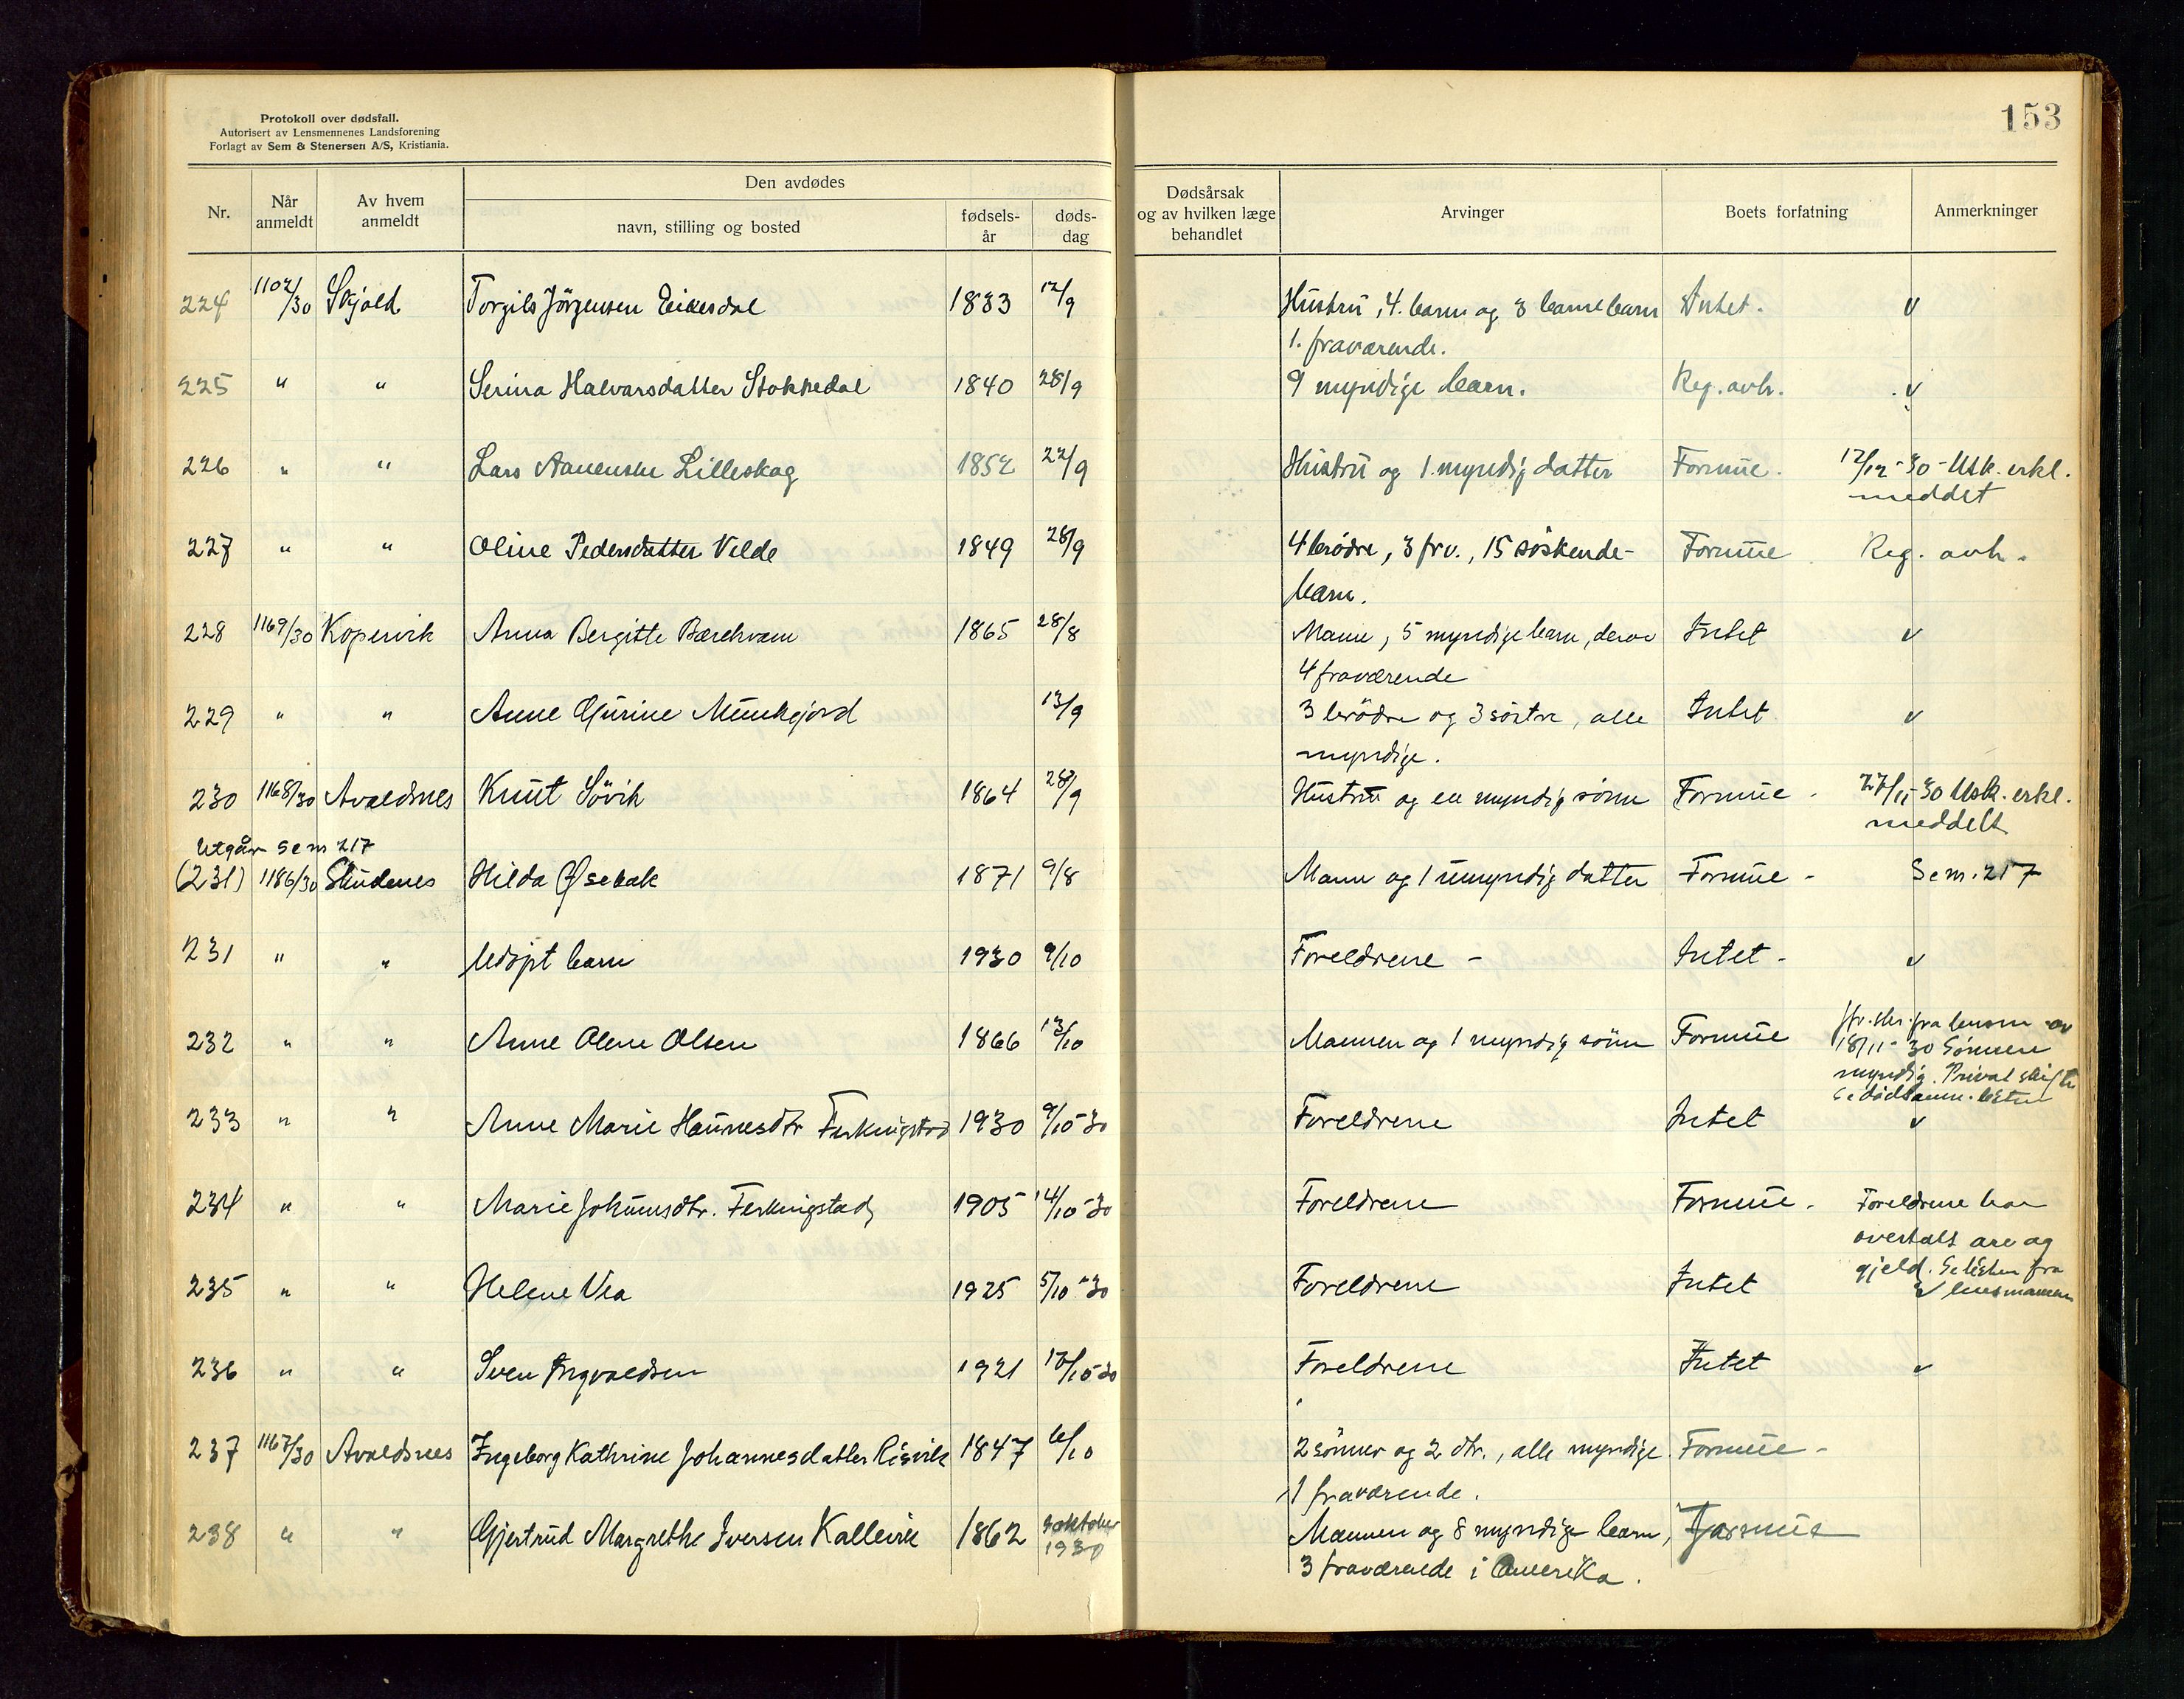 Protokoll over dødsfall.
Autorisert av Lensmennenes Landsforening
Forlagt av Sem & Stenersen A/S, Kristiania.
153
Nr.
Når anmeldt
Av hvem anmeldt
Den avdødes
navn, stilling og bosted
fødsels-år
døds-dag
Dødsårsak og av hvilken læge behandlet
Arvinger
Boets forfatning
Anmerkninger
224 1102/30 Skjold Torgils Jörgensen Eikesdal 1833 12/9 Hustru, 4. barn og 3 barnebarn Intet. v
1. fraværende.
225 " " Serina Halvarsdatter Stokkedal 1840 28/9 9 myndige barn. Reg. avh. v
226 " " Lars Aanensen Lilleskog 1852 22/9 Hustru og 1. myndig datter Formue. 12/12-30 - Usk. erkl.
meddelt
227 " " Oline Pedersdatter Velde 1849 28/9 4 brödre, 3 frv., 15 söskende- Formue Reg. avh.
barn.
228 1169/30 Kopervik Anna Bergitte Bærehvam 1865 28/8 Mann, 5 myndige barn, derav Intet v
4 fraværende
229 " " Anne Gurine Munkejord 13/9 3 brödre og 3 söstre, alle Intet v
myndige.
230 1168/30 Avaldsnes Knut Sövik 1864 28/9 Hustru og en myndig sönn Formue - 27/11-30 Usk. erkl.
meddelt
Utgår se nr 217
(231) 1186/30 Skudenes Hilda Øsebak 1871 9/8 Mann og 1 umyndig datter Formue - Se nr. 217
231 " " Udöpt barn 1930 9/10 Foreldrene - Intet - v
232 " " Anne Olene Olsen 1866 13/10 Mannen og 1 myndig sönn Formue Jfr. skr. fra lensm. av
18/11-30 Sönnen
myndig. Privat skifte
Se dödsanm. listen
233 " " Anne Marie Hannesdtr Ferkingstad 1930 9/10-30 Foreldrene Intet v
234 " " Marie Johannsdtr. Ferkingstad 1905 14/10-30 Foreldrene Formue - Foreldrene har
overtatt arv og
gjeld. Se listen fra
lensmannen
235 " " Helene Vea 1925 5/10-30 Foreldrene Intet v
236 " " Sven Ingvaldsen 1921 /10-30 Foreldrene Intet v
237 1167/30 Avaldsnes Ingeborg Kathrine Johannesdatter Risvik 1847 6/10 2 sönner og 2 dtr., alle myndige. Formue -
1 fraværende.
238 " " Gjertrud Margrethe Iversen Kallevik 1862 3 oktober 1930 Mannen og 8 myndige barn, Formue
3 fraværende i Amerika.